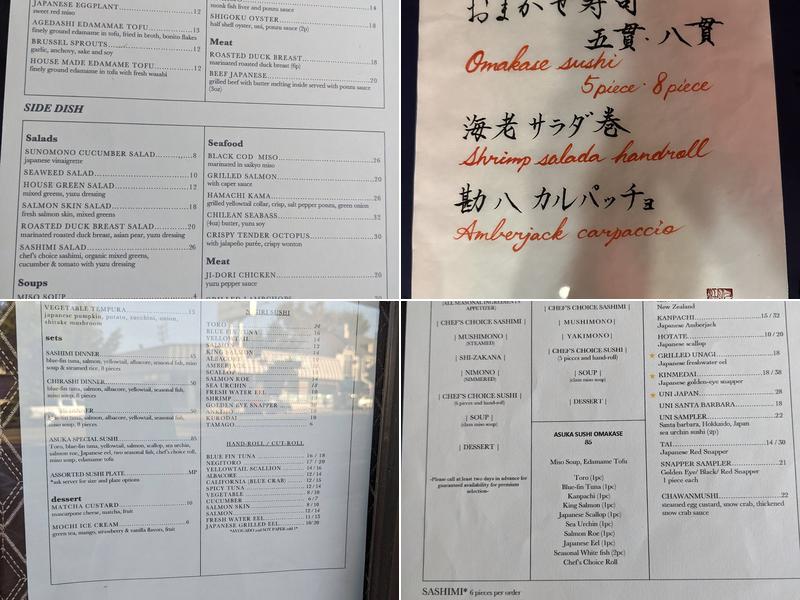 JAPANESE EGGPLANT....12
sweet red miso
AGEDASHI EDAMAME TOFU....13
finely ground edamame in tofu, fried in broth, bonito flakes
BRUSSEL SPROUTS....12
garlic, anchovy, sake and soy
HOUSE MADE EDAMAME TOFU....12
finely ground edamame in tofu with fresh wasabi
monk fish liver and ponzu sauce
SHIGOKU OYSTER....18
half shell oyster, uni, ponzu sauce (2p)
Meat
ROASTED DUCK BREAST....18
marinated roasted duck breast (6p)
BEEF JAPANESE....20
grilled beef with butter melting inside served with ponzu sauce
(3oz)
SIDE DISH
Salads
SUNOMONO CUCUMBER SALAD....8
japanese vinaigrette
SEAWEED SALAD....10
HOUSE GREEN SALAD....12
mixed greens, yuzu dressing
SALMON SKIN SALAD....18
fresh salmon skin, mixed greens
ROASTED DUCK BREAST SALAD....20
marinated roasted duck breast, asian pear, yuzu dressing
SASHIMI SALAD....26
chef's choice sashimi, organic mixed greens,
cucumber & tomato with yuzu dressing
Soups
MISO SOUP....4
Seafood
BLACK COD MISO....26
marinated in saikyo miso
GRILLED SALMON....20
with caper sauce
HAMACHI KAMA....26
grilled yellowtail collar, crisp, salt pepper ponzu, green onion
CHILEAN SEABASS....32
(4oz) butter, yuzu soy
CRISPY TENDER OCTOPUS....30
with jalapeño purée, crispy wonton
Meat
JI-DORI CHICKEN....20
yuzu pepper sauce
おまかせ寿司
五貫・八貫
Omakase sushi
5piece・8piece
海老サラダ巻
Shrimp salada handroll
勘八カルパッチョ
Amberjack carpaccio
VEGETABLE TEMPURA....15
japanese pumpkin, potato, zucchini, onion,
shitake mushroom
sets
SASHIMI DINNER....45
blue-fin tuna, salmon, yellowtail, albacore, seasonal fish, mini
soup & steamed rice, 8 pieces
CHIRASHI DINNER....50
blue-fin tuna, salmon, albacore, yellowtail, seasonal fish,
miso soup, 8 pieces
DINNER....50
tuna, salmon, albacore, yellowtail, seasonal fish,
miso soup, 8 pieces
ASUKA SPECIAL SUSHI....85
Toro, blue-fin tuna, yellowtail, salmon, scallop, sea urchin,
salmon roe, Japanese eel, two seasonal fish, chef's choice roll,
miso soup, edamame tofu
ASSORTED SUSHI PLATE....MP
*ask server for size and plate options
dessert
MATCHA CUSTARD....10
mascarpone cheese, matcha, fruit
MOCHI ICE CREAM....6
green tea, mango, strawberry & vanilla flavors, fruit
NIGIRI SUSHI
TORO....24
BLUE FIN TUNA....16
YELLOWTAIL....14
SALMON....12
KING SALMON
ALBACORE
AMBERJACK
SCALLOP
SALMON ROE
SEA URCHIN
FRESH WATER EEL
SHRIMP
GOLDEN EYE SNAPPER
ANKIMO
KURODAI
TAMAGO....6
HAND-ROLL / CUT-ROLL
BLUE FIN TUNA....16 / 18
NEGITORO....17 / 20
YELLOWTAIL SCALLION....14 / 16
ALBACORE....12 / 14
CALIFORNIA (BLUE CRAB)....12 / 15
SPICY TUNA....12 / 14
VEGETABLE....8 / 10
CUCUMBER....6 / 7
SALMON SKIN....8 / 10
SALMON....12 / 14
FRESH WATER EEL....11 / 13
JAPANESE GRILLED EEL....16/20
*AVOCADO and SOY PAPER add 1*
(ALL SEASONAL INGREDIENTS
APPETIZER)
| CHEF'S CHOICE SASHIMI |
| MUSHIMONO |
(STEAMED)
| SHI-ZAKANA |
| NIMONO |
(SIMMERED)
| CHEF'S CHOICE SUSHI |
(5 pieces and hand-roll)
| SOUP |
(clam miso soup)
| DESSERT |
-Please call at least two days in advance for
guaranteed availability for premium
selection-
| CHEF'S CHOICE SASHIMI |
| MUSHIMONO |
| YAKIMONO |
| CHEF'S CHOICE SUSHI |
(5 pieces and hand-roll)
| SOUP |
(clam miso soup)
| DESSERT |
ASUKA SUSHI OMAKASE
85
Miso Soup, Edamame Tofu
Toro (1pc)
Blue-fin Tuna (1pc)
Kanpachi (1pc)
King Salmon (1pc)
Japanese Scallop (1pc)
Sea Urchin (1pc)
Salmon Roe (1pc)
Japanese Eel (1pc)
Seasonal White fish (2pc)
Chef's Choice Roll
New Zealand
KANPACHI....15 / 32
Japanese Amberjack
HOTATE....10 / 20
Japanese scallop
GRILLED UNAGI....18
Japanese freshwater eel
KINMEDAI....18 / 38
Japanese golden-eye snapper
UNI JAPAN....28
UNI SANTA BARBARA....18
UNI SAMPLER....22
Santa barbara, Hokkaido, Japan
sea urchin sushi (2p)
TAI....14 / 30
Japanese Red Snapper
SNAPPER SAMPLER....21
Golden Eye/ Black/ Red Snapper
1 piece each
CHAWANMUSHI....22
steamed egg custard, snow crab, thickened
snow crab sauce
SASHIMI* 6 pieces per order